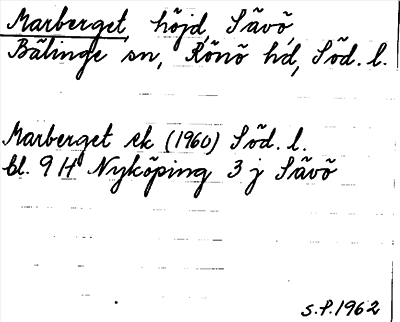 Marberget, höjd, Sävö,
Bälinge sn, Rönö hd, Söd. l.
Marberget ek (1960) Söd. l.
bl. 9 H Nyköping 3 j Sävö
S.P. 1962